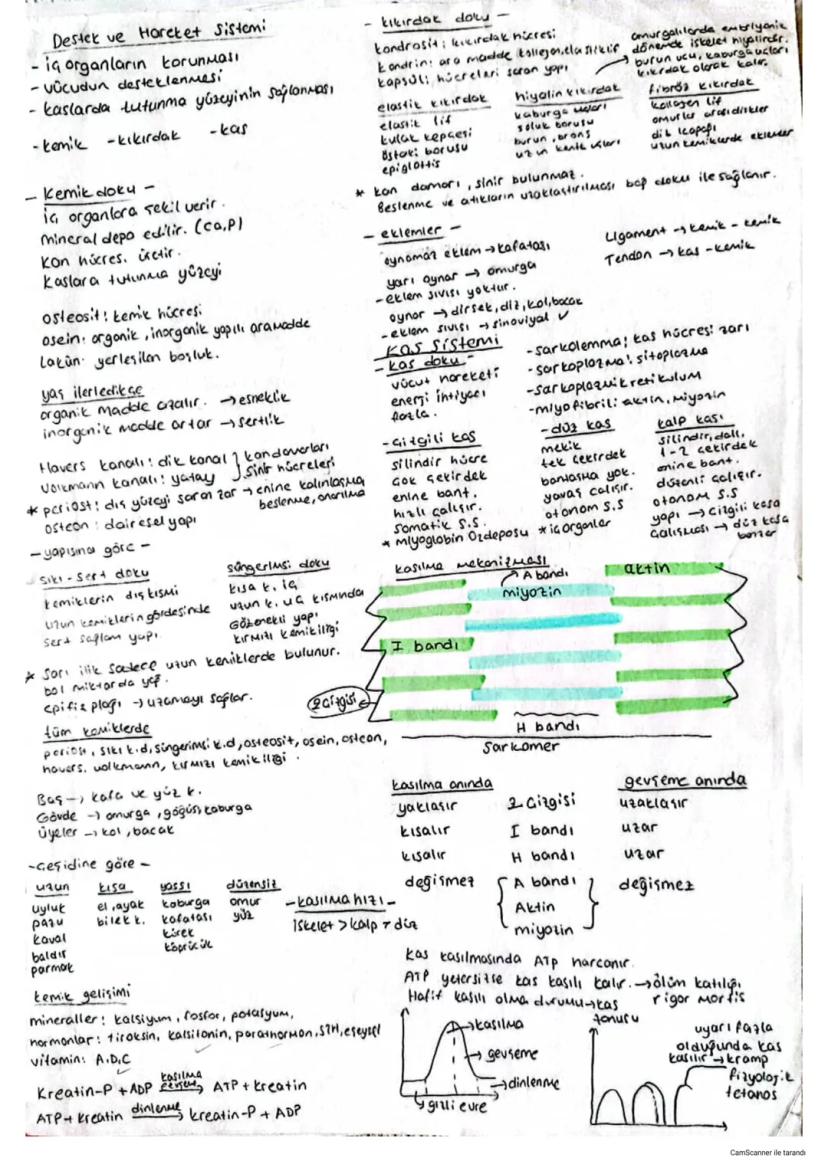 Destek ve Hareket Sistemi
- iç organların korunması
- vücudun desteklenmesi
- kaslarda tutunma yüzeyinin sağlanması
- kemik - kıkırdak - kas
- Kemik doku -
iç organlara şekil verir.
mineral depo edilir. (Ca,P)
kan hücres. üretir.
kaslara tutunma yüzeyi
osteosit: kemik hücresi
osein: organik, inorganik yapılı aramadde
Lakün: yerleşilen boşluk.
yaş ilerledikçe
organik madde azalır. → esneklik
inorganik madde artar → sertlik
Havers kanalı: dik kanal } kan damarları
Volkmann kanalı: yatay } sinir hücreleri
* periost: dış yüzeyi saran zar → enine kalınlaşma
beslenme, onarılma
osteon: dairesel yapı
- yapısına göre -
sıkı - sert doku
kemiklerin dış kısmı
uzun kemiklerin gövdesinde
sert sağlam yapı.
süngerimsi doku
kısa k. iç
uzun k. uç kısmında
gözenekli yapı
kırmızı kemik iliği
* Sarı ilik sadece uzun kemiklerde bulunur.
bol miktarda yağ.
epifiz plağı → uzamayı sağlar.
tüm kemiklerde
periost, sıkı k.d, süngerimsi k.d, osteosit, osein, osteon,
havers, volkmann, kırmızı kemik iliği.
Baş → kafa ve yüz k.
Gövde → omurga, göğüs, kaburga
üyeler → kol, bacak
- Çeşidine göre -
uzun
uyluk
pazu
kaval
baldır
parmak
kısa
el, ayak
bilek k.
yassı
kaburga
kafatası
kürek
köprücük
düzensiz
omur
yüz
- kasılma hızı -
iskelet > kalp > düz
kemik gelişimi
mineraller: kalsiyum, fosfor, potasyum,
hormonlar: tiroksin, kalsitonin, parathormon, STH, eşeysel
vitamin: A,D,C
Kreatin-P + ADP kasılma → ATP + kreatin
ATP + kreatin dinlenme → kreatin-P + ADP
- kıkırdak doku -
kondrosit: kıkırdak hücresi
kondrin: ara madde kollojen, elastiktir
kapsül: hücreleri saran yapı
omurgalılarda embriyonik
dönemde iskelet hiyalindir.
burun ucu, kaburga uçları
kıkırdak olarak kalır.
elastik kıkırdak
elastik lif
kulak kepçesi
östaki borusu
epiglottis
hiyalin kıkırdak
kaburga uçları
soluk borusu
burun, bronş
uzun kemik uçları
fibröz kıkırdak
kollojen lif
omurlar arası diskler
diz kapağı
uzun kemiklerde eklemler
* kan damarı, sinir bulunmaz.
Beslenme ve atıkların uzaklaştırılması bağ doku ile sağlanır.
- eklemler -
oynamaz eklem → kafatası
yarı oynar → omurga
- eklem sıvısı yoktur.
oynar → dirsek, diz, kol, bacak
- eklem sıvısı → sinoviyal ✓
Ligament → kemik - kemik
Tendon → kas - kemik
Kas sistemi
- Kas doku -
vücut hareketi
enerji ihtiyacı
fazla.
- sarkolemma: kas hücresi zarı
- sarkoplazma: sitoplazma
- sarkoplazmik retikulum
- miyofibril: aktin, miyozin
- Çizgili kas
silindir hücre
çok çekirdek
enine bant.
hızlı çalışır.
somatik S.S.
* Miyoglobin O₂ deposu
- düz kas
mekik
tek çekirdek
bantlaşma yok.
yavaş çalışır.
otonom S.S
* iç organlar
kalp kası
silindir, dall.
1-2 çekirdek
enine bant.
düzenli çalışır.
otonom S.S
yapı → çizgili kasa
çalışması → düz kasa
benzer
kasılma mekanizması
A bandı
aktin
miyozin
I bandı
Z çizgisi
H bandı
Sarkomer
kasılma anında
gevşeme anında
yaklaşır Z çizgisi uzaklaşır
kısalır I bandı uzar
kısalır H bandı uzar
değişmez { A bandı } değişmez
Aktin
miyozin
kas kasılmasında ATP harcanır.
ATP yetersizse kas kasılı kalır. → ölüm katılığı
rigor mortis
Hafif kasılı olma durumu → kas
tonusu
kasılma
gevşeme
dinlenme
gizli evre
uyarı fazla
olduğunda kas
kasılır → kramp
fizyolojik
tetanos
CamScanner ile tarandı